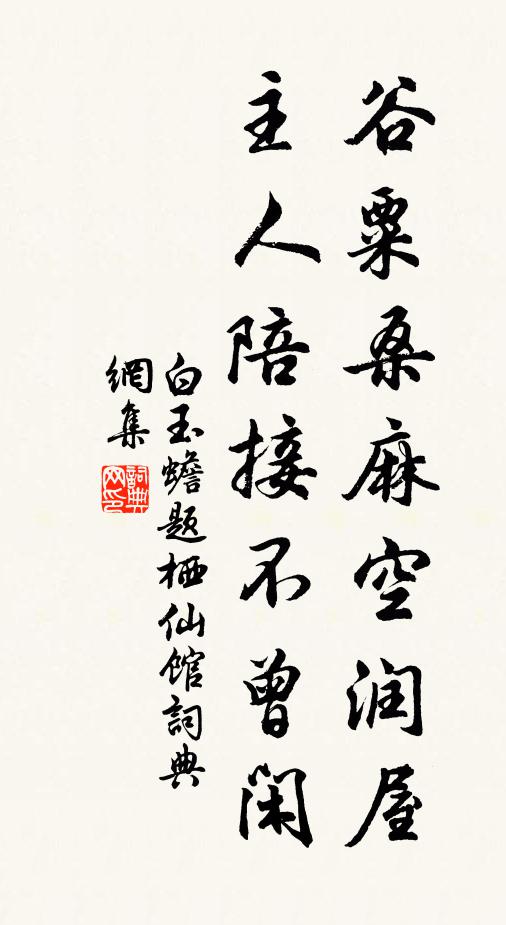 谷粟桑麻空润屋
主人陪接不曾闲
白玉蟾题栖仙馆詞典
網集
詞典
网印